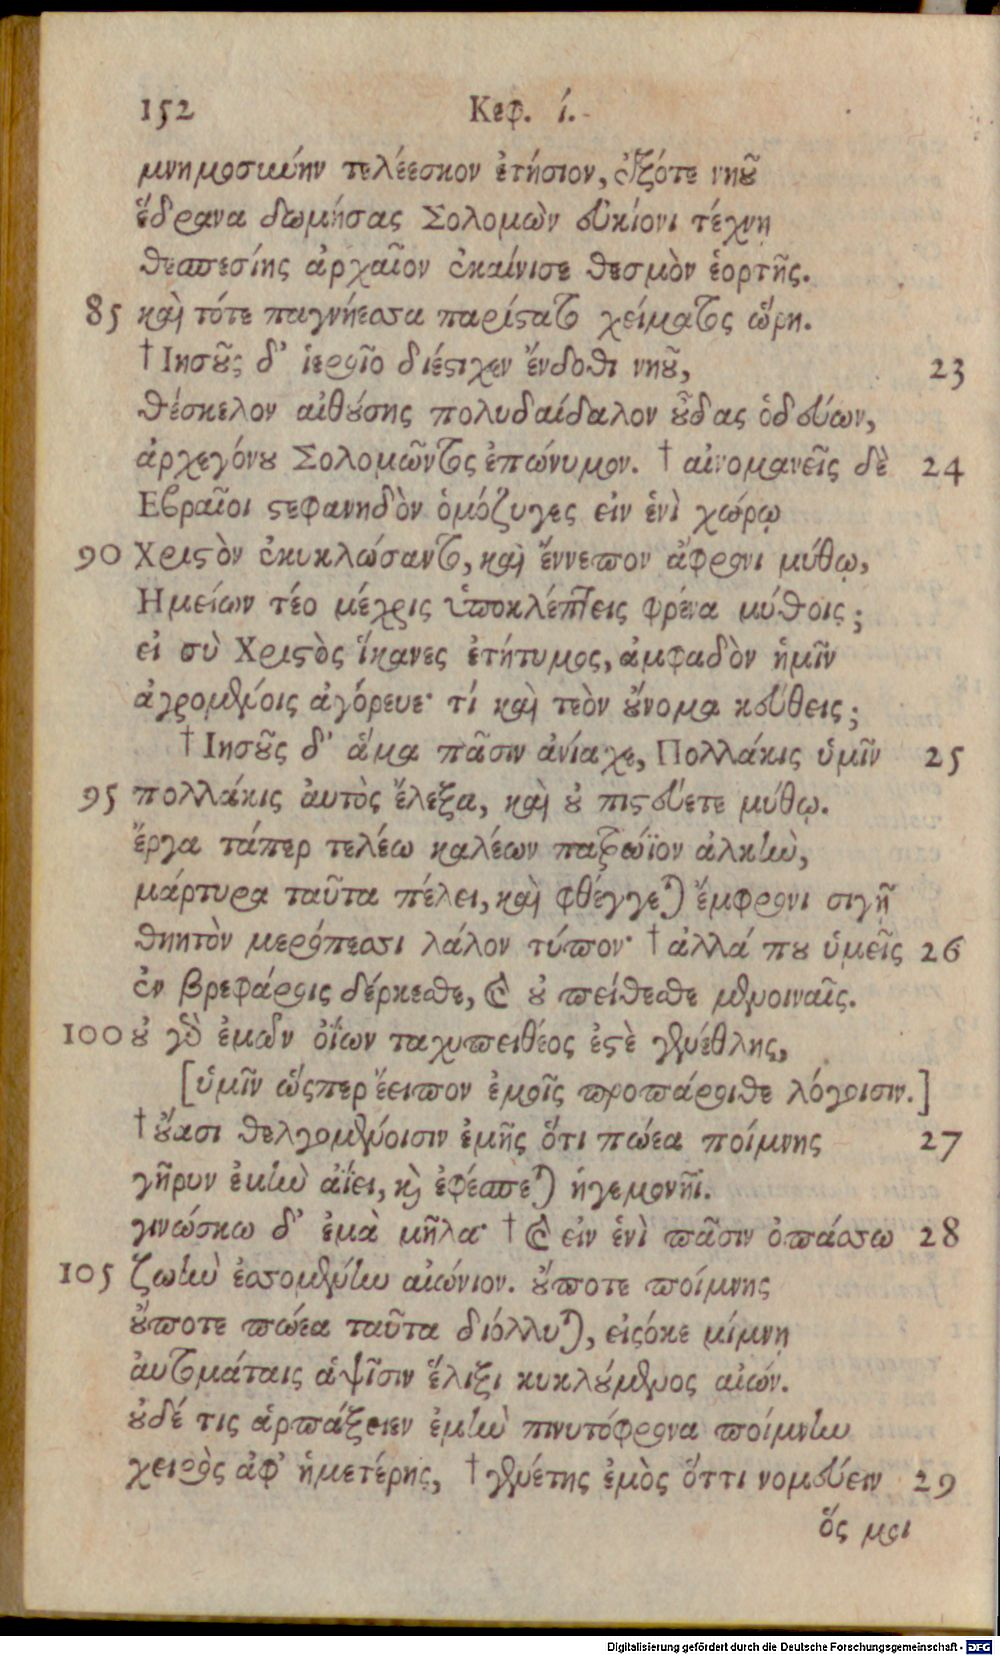 152 Κεφ. ί.
μνημοσύνην τελέεσκον ἐτήσιον, ἐξότε νηοῦ
ἕδρανα δωμήσας Σολομὼν εὐκίονι τέχνῃ
θεσπεσίης ἀρχαῖον ἐκαίνισε θεσμὸν ἑορτῆς.
85 καὶ τότε παγνήεσσα παρίστατο χείματος ὥρη.
† Ιησοῦς δ᾽ ἱεροῖο διέστιχεν ἔνδοθι νηοῦ, 23
θέσκελον αἰθούσης πολυδαίδαλον οὖδας ὁδεύων,
ἀρχεγόνου Σολομῶντος ἐπώνυμον. † αἰνομανεῖς δὲ 24
Εβραῖοι στεφανηδὸν ὁμόζυγες εἰν ἑνὶ χώρῳ
90 Χριστὸν ἐκυκλώσαντο, καὶ ἔννεπον ἄφρονι μύθῳ,
Ημείων τέο μέχρις ὑποκλέπτεις φρένα μύθοις;
εἰ σὺ Χριστὸς ἵκανες ἐτήτυμος, ἀμφαδὸν ἡμῖν
ἀγρομένοις ἀγόρευε· τί καὶ τεὸν οὔνομα κεύθεις;
† Ιησοῦς δ᾽ ἅμα πᾶσιν ἀνίαχε, Πολλάκις ὑμῖν 25
95 πολλάκις αὐτὸς ἔλεξα, καὶ οὐ πιστεύετε μύθῳ.
ἔργα τάπερ τελέω καλέων πατρώϊον ἀλκὴν,
μάρτυρα ταῦτα πέλει, καὶ φθέγγεται ἔμφρονι σιγῇ
θηητὸν μερόπεσσι λάλον τύπον· † ἀλλά που ὑμεῖς 26
ἐν βλεφάροις δέρκεσθε, καὶ οὐ πείθεσθε μενοιναῖς.
100 οὐ γὰρ ἐμῶν ὀΐων ταχυπειθέος ἐστὲ γενέθλης,
[ὑμῖν ὥσπερ ἔειπον ἐμοῖς προπάροιθε λόγοισιν.]
† οὔασι θελγομένοισιν ἐμῆς ὅτι πώεα ποίμνης 27
γῆρυν ἐμὴν ἀΐει, καὶ ἐφέσπεται ἡγεμονῆϊ.
γινώσκω δ᾽ ἐμὰ μῆλα· † καὶ εἰν ἑνὶ πᾶσιν ὀπάσσω 28
105 ζωὴν ἐσσομένην αἰώνιον. οὔποτε ποίμνης
οὔποτε πώεα ταῦτα διόλλυται, εἰσόκε μίμνῃ
αὐτομάταις ἁψῖσιν ἕλιξι κυκλούμενος αἰών.
οὐδέ τις ἁρπάξειεν ἐμὴν πινυτόφρονα ποίμνην
χειρὸς ἀφ᾽ ἡμετέρης, † γενέτης ἐμὸς ὅττι νομεύειν 29
ὅς μοι
Digitalisierung gefördert durch die Deutsche Forschungsgemeinschaft - DFG